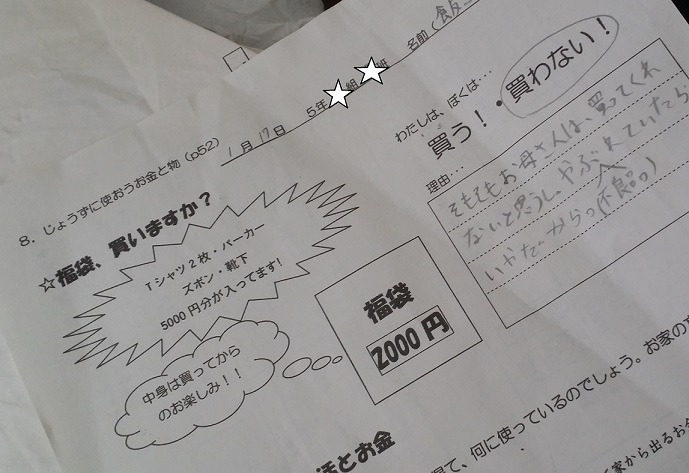 8. じょうずに使おうお金と物 (p52)
1月17日 5年 組 班 名前(飯
☆福袋、買いますか？
Tシャツ2枚・パーカー
ズボン・靴下
5000円分が入ってます!
中身は買ってから
のお楽しみ！！
福袋
2000円
わたしは、ぼくは…
買う！・買わない！
理由…
そもそもお母さんは、買ってくれ
ないと思うし、やぶれていたら
いやだーからっ(不良品)
活とお金
て、何に使っているのでしょう。お家の
家から出るお金